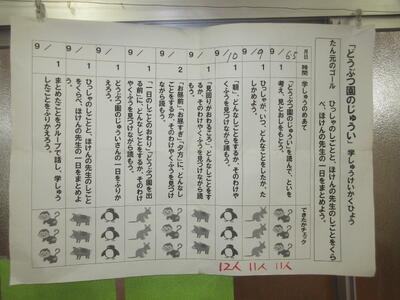 「どうぶつ園のじゅうい」 学しゅうけいかくひょう
たん元のゴール
ひっしゃのしごとと、ほけんの先生のしごとをくらべ、ほけんの先生の一日をまとめよう。
月日 時間 学しゅうのめあて できたかチェック
9/6 1 「どうぶつ園のじゅうい」を読んで、といを
考え、見とおしをもとう。
9/9 1 ひっしゃが、いつ、どんなことをしたか、た
しかめよう。
9/10 1 「朝」、どんなしごとをするか、そのわけや
くふうを見つけながら読もう。
9/ 1 「見回りがおわるころ」、どんなしごとをす
るか、そのわけやくふうを見つけながら読
もう。
9/ 2 「お昼前」、「お昼すぎ」「夕方」に、どんなし
ごとをするか、そのわけやくふうを見つけ
ながら読もう。
9/ 1 「一日のしごとのおわり」「どうぶつ園を出
る前」に、どんなしごとをするか、そのわけ
やくふうを見つけながら読もう。
9/ 1 どうぶつ園のじゅういさんの一日をふりか
えろう。
9/ 1 ひっしゃのしごとと、ほけんの先生のしごと
をくらべ、ほけんの先生の一日をまとめよ
う。
9/ 1 まとめたことをグループで話し、学しゅう
したことをふりかえろう。
12人 11人 11人